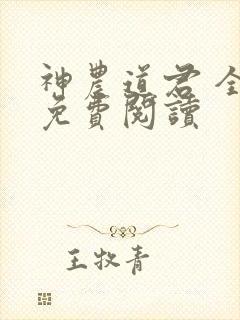 神農道君 全
免費閱讀
王牧青